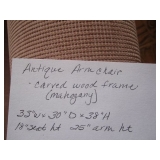 Antique Armchair
- carved wood frame
(mahogany)
35"W x 30"D x 38"H
18" seat ht 25" arm ht